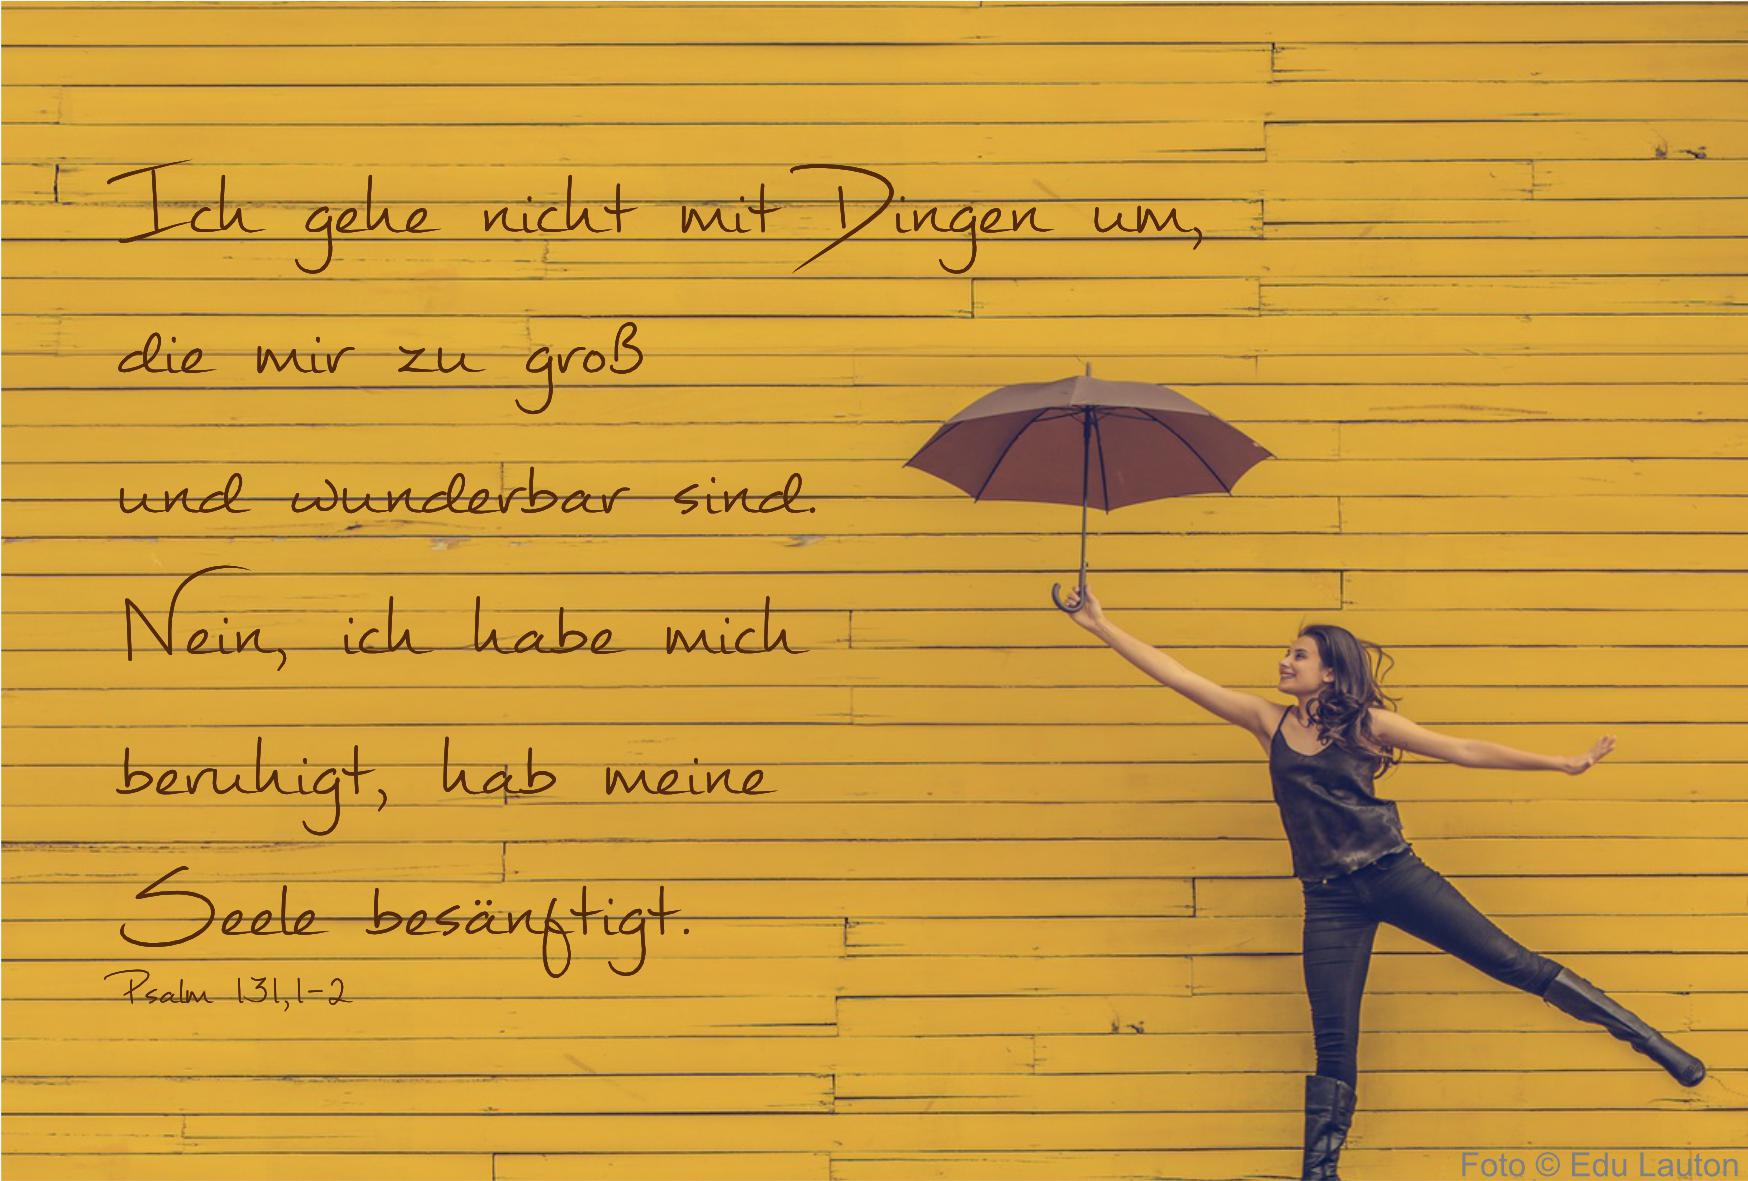 Ich gehe nicht mit Dingen um,
die mir zu groß
und wunderbar sind.
Nein, ich habe mich
beruhigt, hab meine
Seele besänftigt.
Psalm 131,1-2
Foto © Edu Lauton